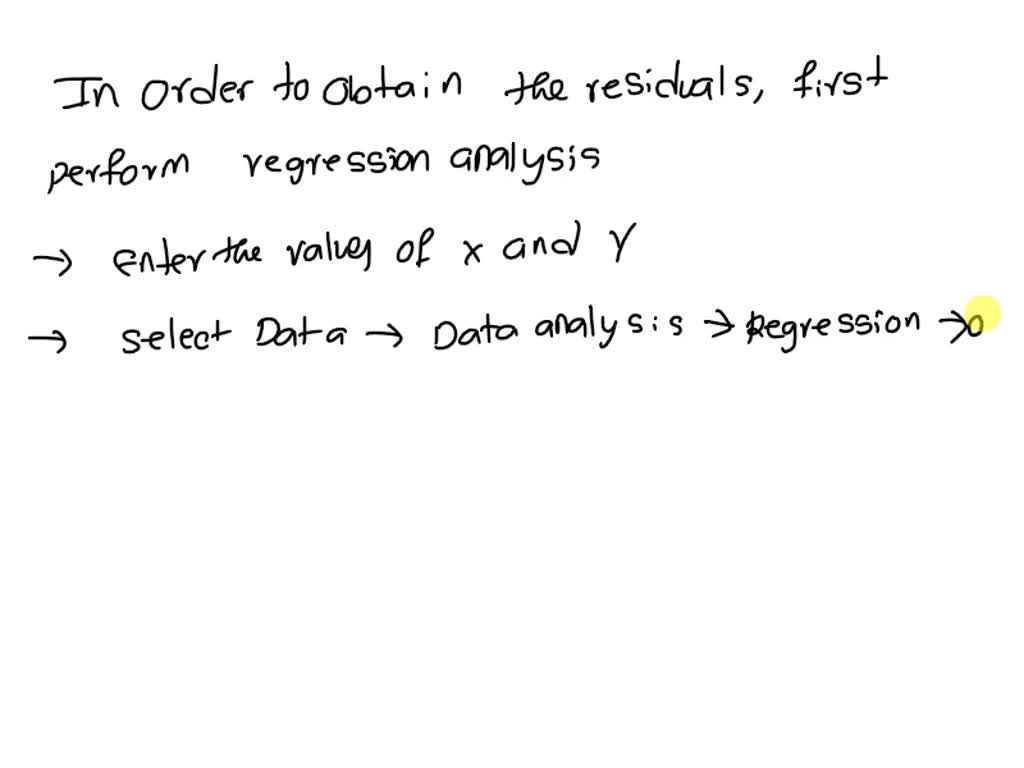 In order to obtain the residuals, first
perform regression analysis
→ Enter the values of x and Y
→ select Data → Data analysis → Regression → o